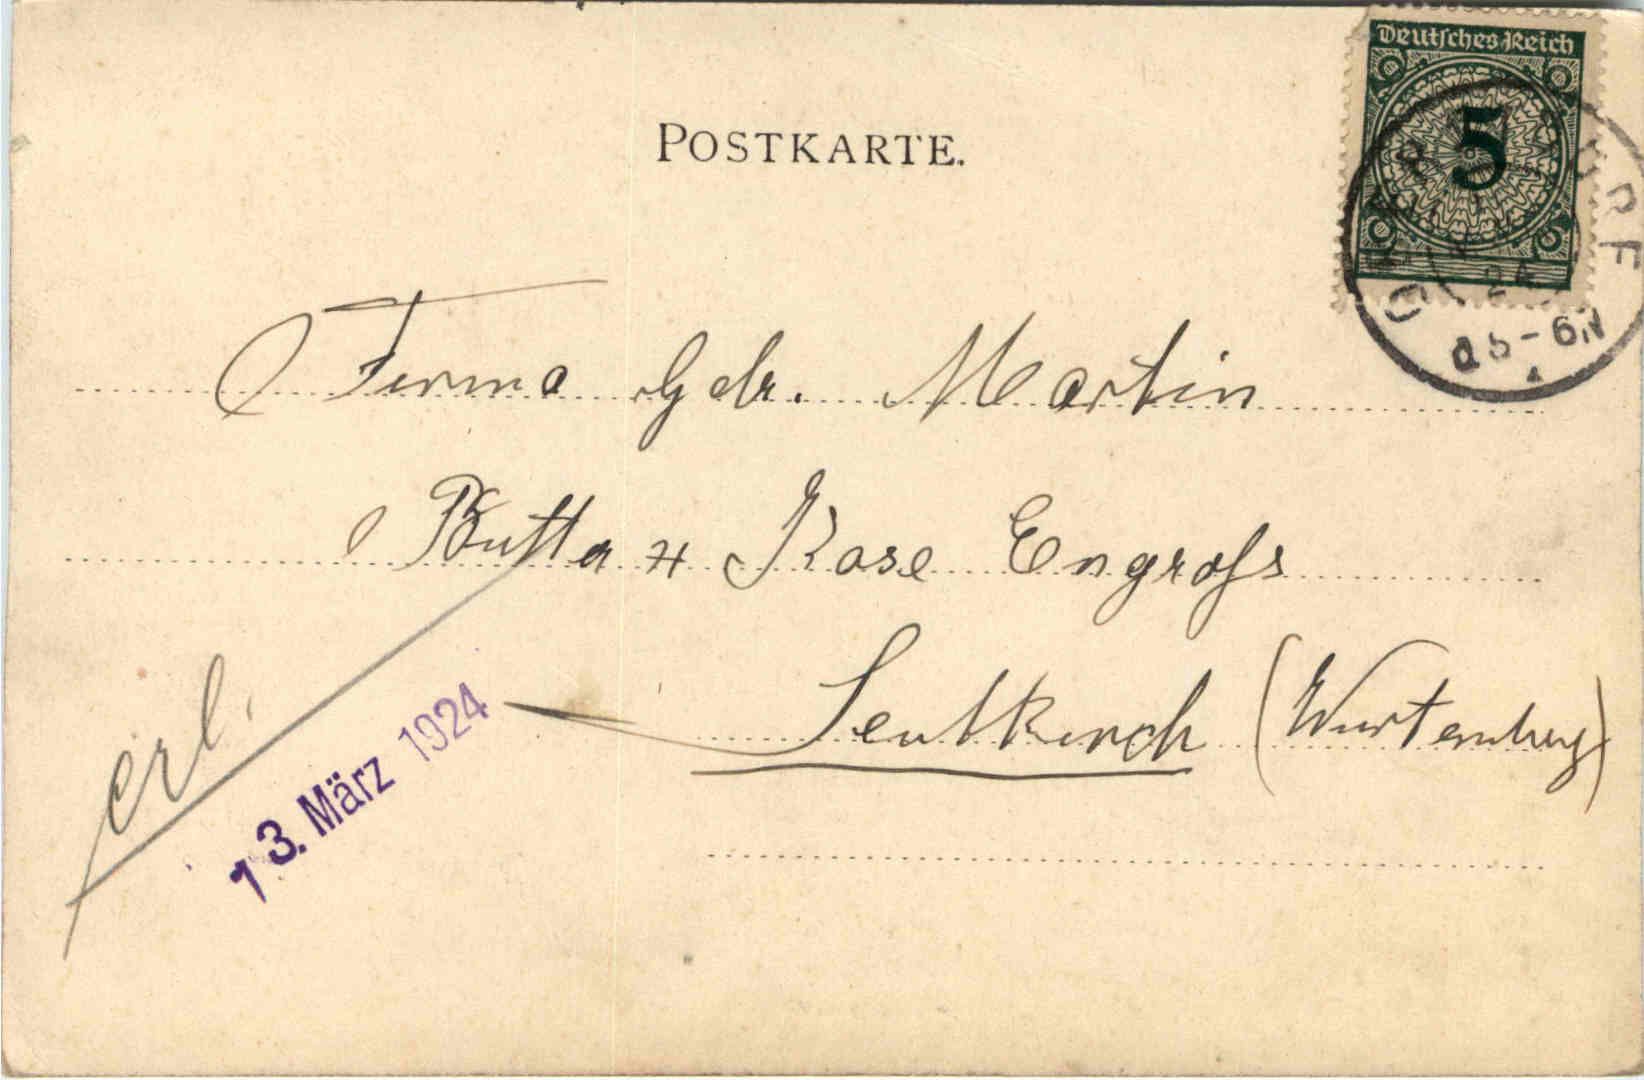 Deutsches Reich
5
POSTKARTE.
5-6N
Firma Gebr. Martin
Butter u Kase Engros
Leutkirch (Wurtemberg)
erl.
13. März 1924